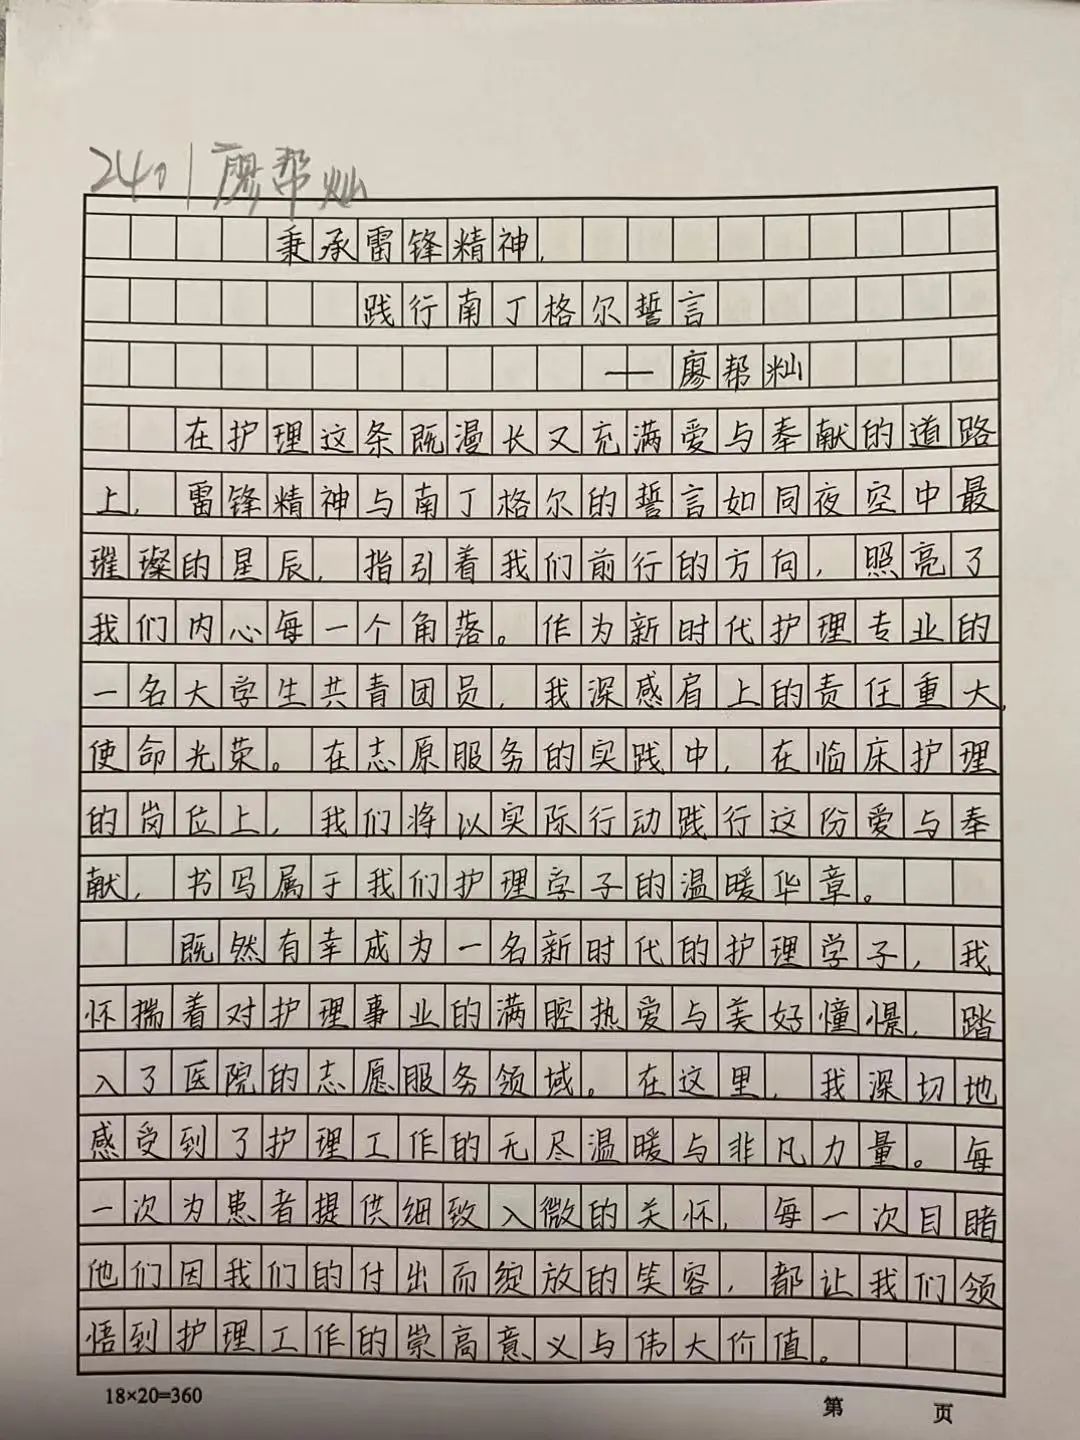 2401廖帮灿
秉承雷锋精神，
践行南丁格尔誓言
——廖帮灿
在护理这条既漫长又充满爱与奉献的道路
上，雷锋精神与南丁格尔的誓言如同夜空中最
璀璨的星辰，指引着我们前行的方向，照亮了
我们内心每一个角落。作为新时代护理专业的
一名大学生共青团员，我深感肩上的责任重大，
使命光荣。在志原服务的实践中，在临床护理
的岗位上，我们将以实际行动践行这份爱与奉
献，书写属于我们护理学子的温暖华章。
既然有幸成为一名新时代的护理学子，我
怀揣着对护理事业的满腔热爱与美好憧憬，踏
入了医院的志愿服务领域。在这里，我深切地
感受到了护理工作的无尽温暖与非凡力量。每
一次为患者提供细致入微的关怀，每一次目睹
他们因我们的付出而绽放的笑容，都让我们领
悟到护理工作的崇高意义与伟大价值。
18×20=360
第 页